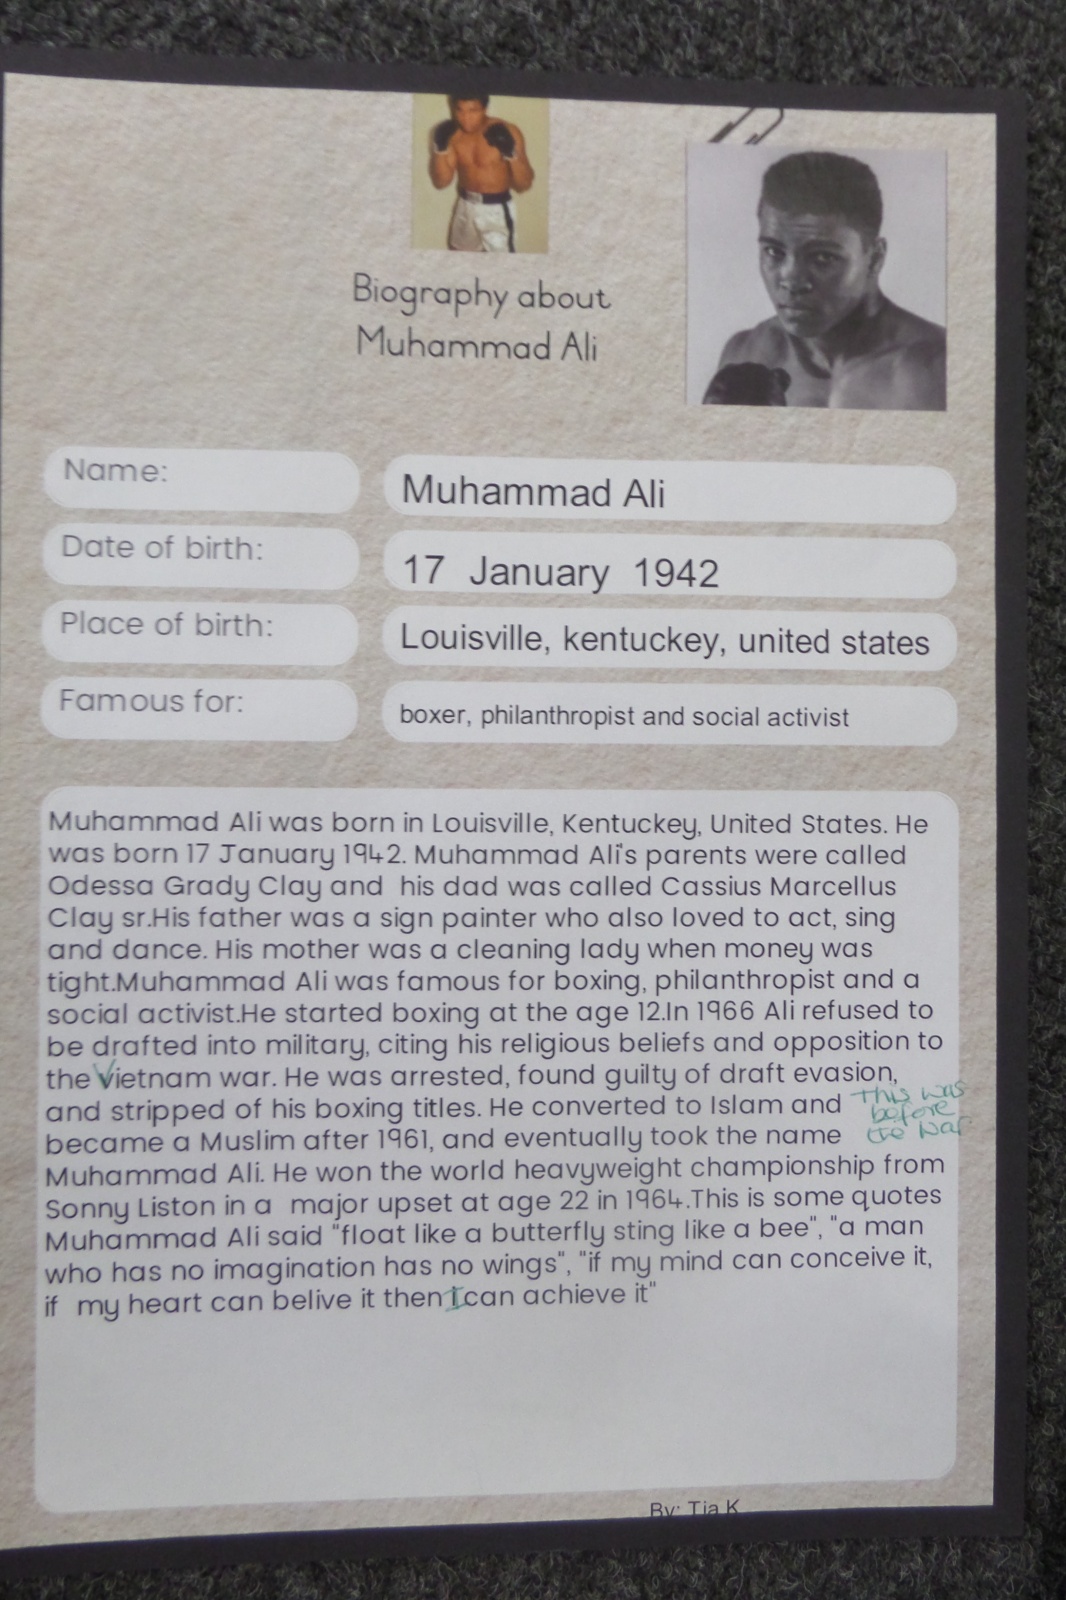 Biography about
Muhammad Ali
Name:
Muhammad Ali
Date of birth:
17 January 1942
Place of birth:
Louisville, kentuckey, united states
Famous for:
boxer, philanthropist and social activist
Muhammad Ali was born in Louisville, Kentuckey, United States. He
was born 17 January 1942. Muhammad Ali's parents were called
Odessa Grady Clay and his dad was called Cassius Marcellus
Clay sr.His father was a sign painter who also loved to act, sing
and dance. His mother was a cleaning lady when money was
tight.Muhammad Ali was famous for boxing, philanthropist and a
social activist.He started boxing at the age 12.In 1966 Ali refused to
be drafted into military, citing his religious beliefs and opposition to
the Vietnam war. He was arrested, found guilty of draft evasion,
and stripped of his boxing titles. He converted to Islam and
became a Muslim after 1961, and eventually took the name
This was
before
the war
Muhammad Ali. He won the world heavyweight championship from
Sonny Liston in a major upset at age 22 in 1964.This is some quotes
Muhammad Ali said "float like a butterfly sting like a bee", "a man
who has no imagination has no wings", "if my mind can conceive it,
if my heart can belive it then I can achieve it"
By: Tia K